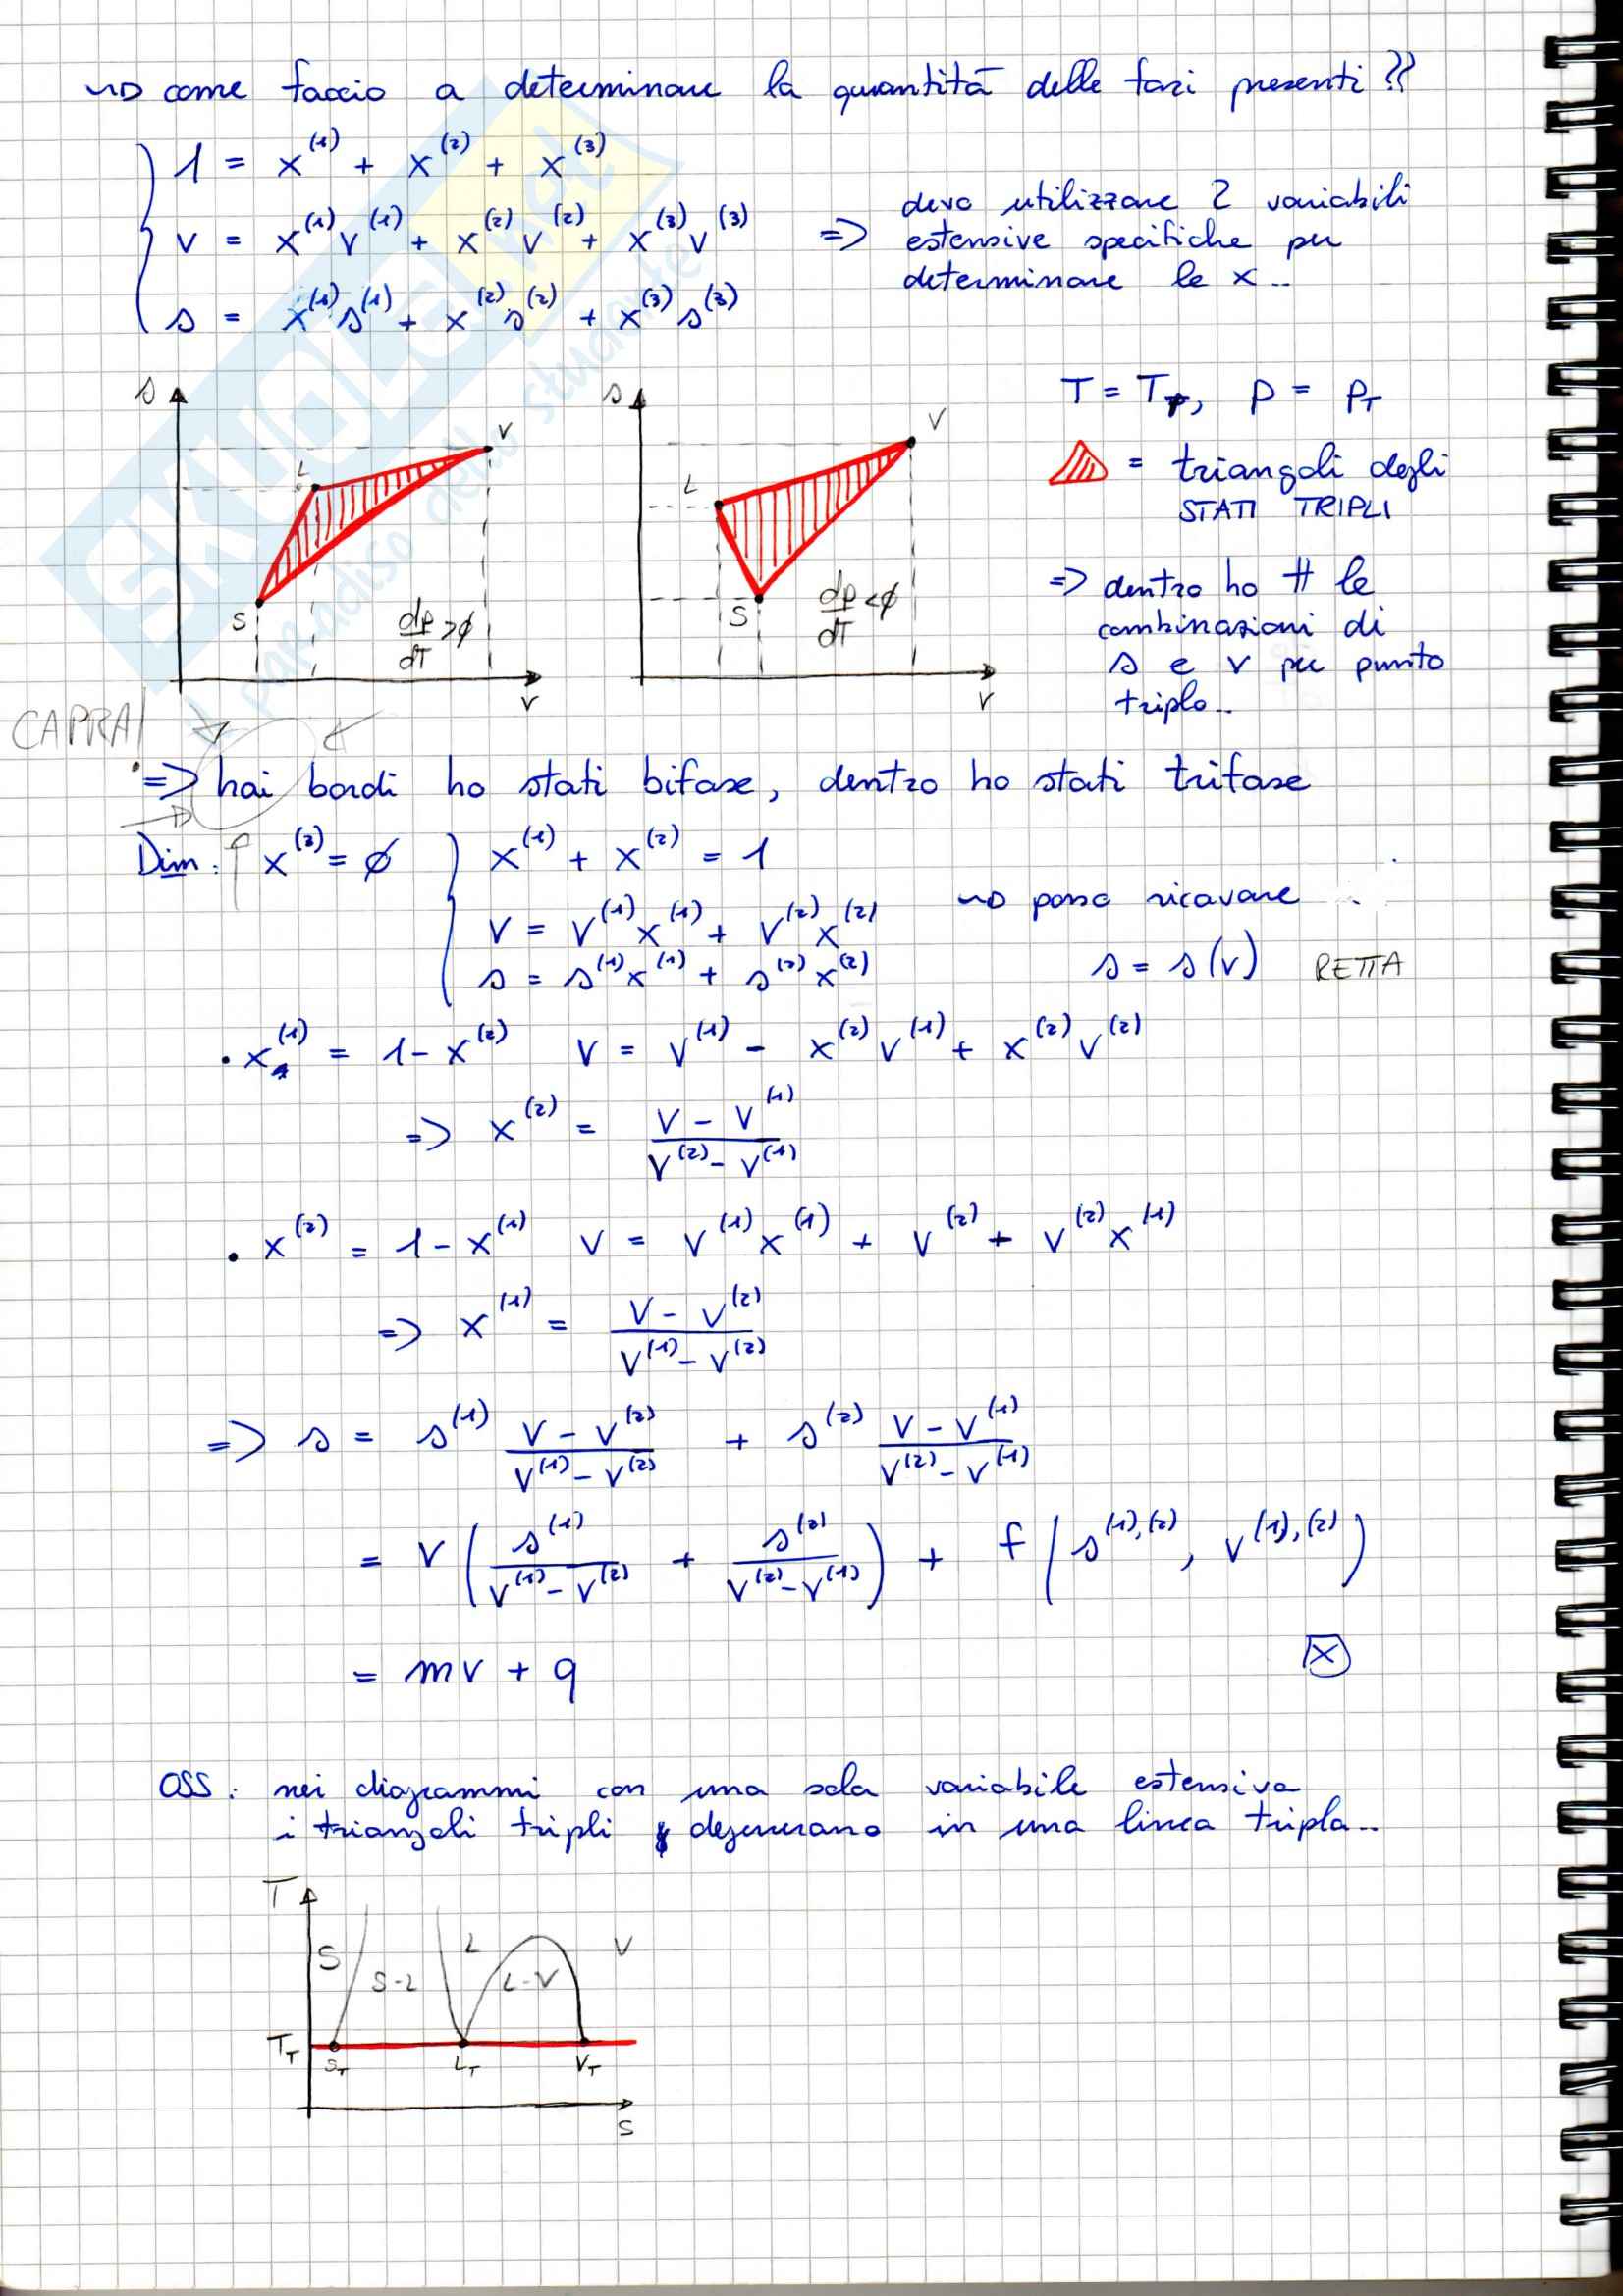 ~> come faccio a determinare la quantità delle fasi presenti??
1 = x^(1) + x^(2) + x^(3)
v = x^(1) v^(1) + x^(2) v^(2) + x^(3) v^(3)
s = x^(1) s^(1) + x^(2) s^(2) + x^(3) s^(3)
=> devo utilizzare 2 variabili
estensive specifiche per
determinare le x..
s
L
V
S
dp/dT > 0
v
s
L
V
S
dp/dT < 0
v
T = T_T, p = p_T
= triangoli degli
STATI TRIPLI
=> dentro ho # le
combinazioni di
s e v per punto
triplo..
SKUOLA.net
paradiso dello studente
CAPRA!
=> hai bordi ho stati bifase, dentro ho stati trifase
Dim: x^(3) = 0
x^(1) + x^(2) = 1
v = v^(1) x^(1) + v^(2) x^(2)
s = s^(1) x^(1) + s^(2) x^(2)
~> posso ricavare
s = s(v) RETTA
• x^(1) = 1 - x^(2) v = v^(1) - x^(2) v^(1) + x^(2) v^(2)
=> x^(2) = (v - v^(1)) / (v^(2) - v^(1))
• x^(2) = 1 - x^(1) v = v^(1) x^(1) + v^(2) + v^(2) x^(1)
=> x^(1) = (v - v^(2)) / (v^(1) - v^(2))
=> s = s^(1) (v - v^(2)) / (v^(1) - v^(2)) + s^(2) (v - v^(1)) / (v^(2) - v^(1))
= v ( s^(1) / (v^(1) - v^(2)) + s^(2) / (v^(2) - v^(1)) ) + f ( s^(1),(2), v^(1),(2) )
= mv + q
OSS: nei diagrammi con una sola variabile estensiva
i triangoli tripli degenerano in una linea tripla..
T
S
S-L
L
L-V
V
T_T
S_T
L_T
V_T
S